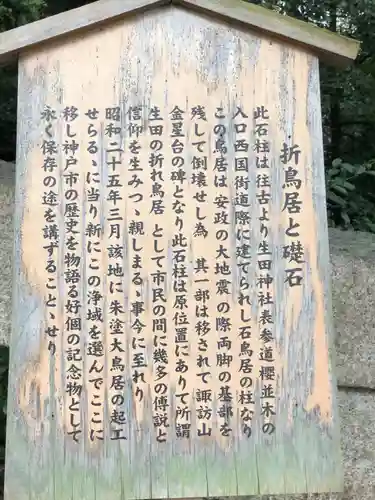 折鳥居と礎石
此石柱は往古より生田神社表参道櫻並木の
入口西国街道際に建てられし石鳥居の柱なり
この鳥居は安政の大地震の際両脚の基部を
残して倒壊せし為 其一部は移されて諏訪山
金星台の碑となり此石柱は原位置にありて所謂
生田の折れ鳥居 として市民の間に幾多の傳説と
信仰を生みつゝ親しまるゝ事今に至れり
昭和二十五年三月該地に朱塗大鳥居の起工
せらるゝに当り新にこの浄域を選んでここに
移し神戸市の歴史を物語る好個の記念物として
永く保存の途を講ずることゝせり